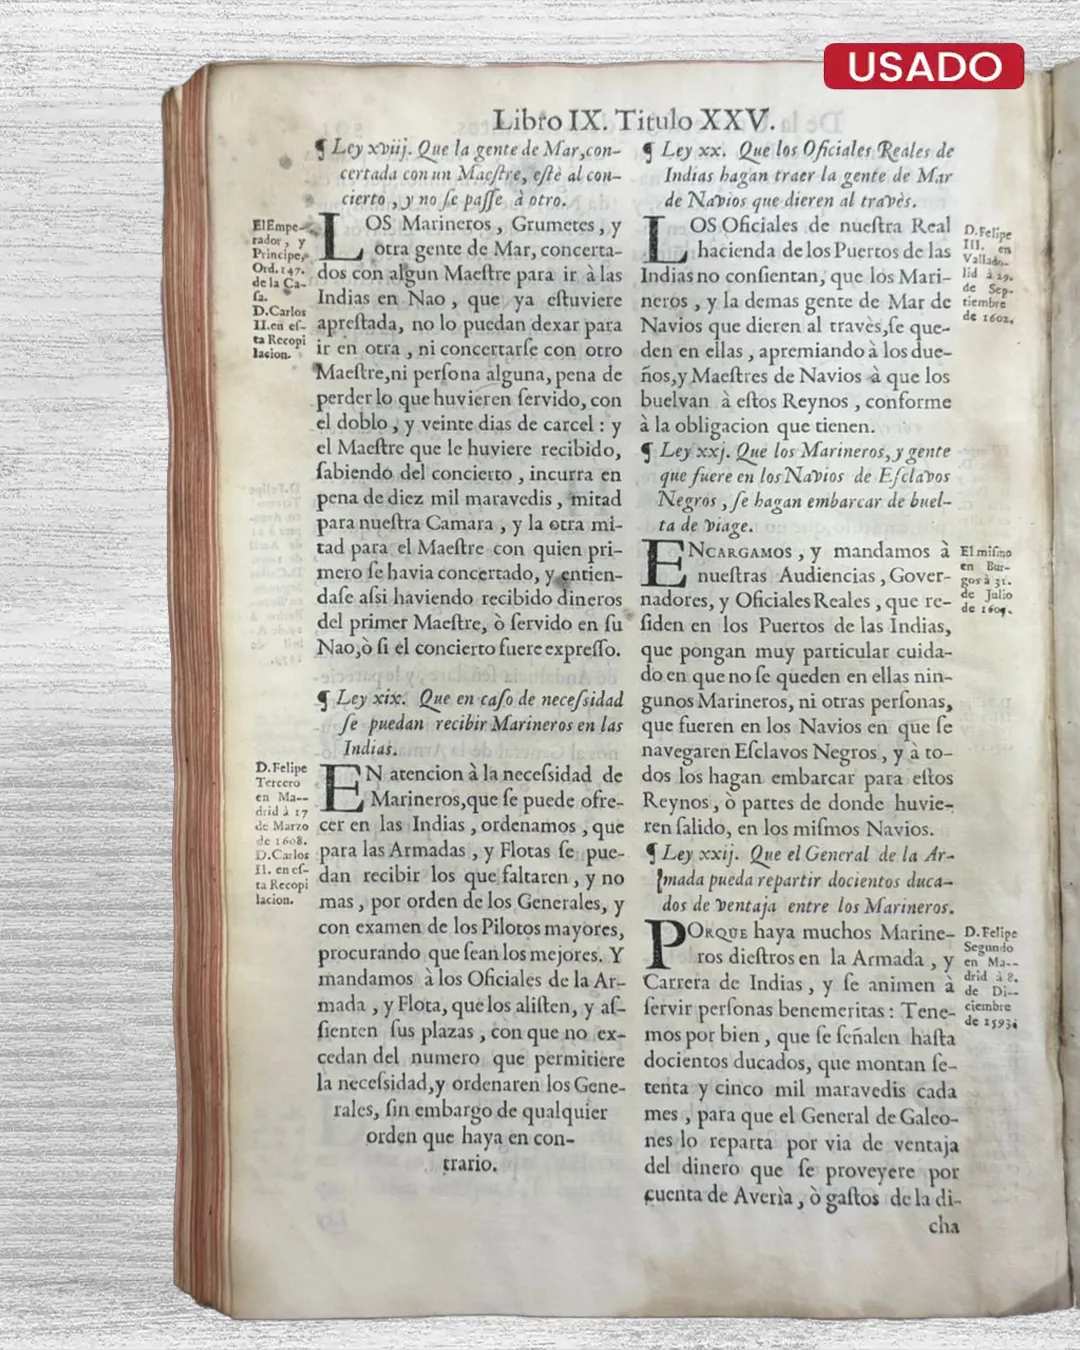 USADO
Libro IX. Titulo XXV.
¶ Ley xviij. Que la gente de Mar, con-
certada con un Maeſtre, eſtè al con-
cierto, y no ſe paſſe à otro.
El Empe-
rador, y
Principe,
Ord. 147.
de la Ca-
ſa.
D. Carlos
II. en eſ-
ta Recopi
lacion.
LOS Marineros, Grumetes, y
otra gente de Mar, concerta-
dos con algun Maeſtre para ir à las
Indias en Nao, que ya eſtuviere
apreſtada, no lo puedan dexar para
ir en otra, ni concertarſe con otro
Maeſtre, ni perſona alguna, pena de
perder lo que huvieren ſervido, con
el doblo, y veinte dias de carcel: y
el Maeſtre que le huviere recibido,
ſabiendo del concierto, incurra en
pena de diez mil maravedis, mitad
para nueſtra Camara, y la otra mi-
tad para el Maeſtre con quien pri-
mero ſe havia concertado, y entien-
daſe aſsi haviendo recibido dineros
del primer Maeſtre, ò ſervido en ſu
Nao, ò ſi el concierto fuere expreſſo.
¶ Ley xix. Que en caſo de neceſsidad
ſe puedan recibir Marineros en las
Indias.
D. Felipe
Tercero
en Ma--
drid à 17
de Marzo
de 1608.
D. Carlos
II. en eſ-
ta Recopi
lacion.
EN atencion à la neceſsidad de
Marineros, que ſe puede ofre-
cer en las Indias, ordenamos, que
para las Armadas, y Flotas ſe pue-
dan recibir los que faltaren, y no
mas, por orden de los Generales, y
con examen de los Pilotos mayores,
procurando que ſean los mejores. Y
mandamos à los Oficiales de la Ar-
mada, y Flota, que los aliſten, y aſ-
ſienten ſus plazas, con que no ex-
cedan del numero que permitiere
la neceſsidad, y ordenaren los Gene-
rales, ſin embargo de qualquier
orden que haya en con-
trario.
¶ Ley xx. Que los Oficiales Reales de
Indias hagan traer la gente de Mar
de Navios que dieren al travès.
LOS Oficiales de nueſtra Real
hacienda de los Puertos de las
Indias no conſientan, que los Mari-
neros, y la demas gente de Mar de
Navios que dieren al travès, ſe que-
den en ellas, apremiando à los due-
ños, y Maeſtres de Navios à que los
buelvan à eſtos Reynos, conforme
à la obligacion que tienen.
D. Felipe
III. en
Vallado-
lid à 29.
de Sep-
tiembre
de 1602.
¶ Ley xxj. Que los Marineros, y gente
que fuere en los Navios de Eſclavos
Negros, ſe hagan embarcar de buel-
ta de viage.
ENCARGAMOS, y mandamos à
nueſtras Audiencias, Gover-
nadores, y Oficiales Reales, que re-
ſiden en los Puertos de las Indias,
que pongan muy particular cuida-
do en que no ſe queden en ellas nin-
gunos Marineros, ni otras perſonas,
que fueren en los Navios en que ſe
navegaren Eſclavos Negros, y à to-
dos los hagan embarcar para eſtos
Reynos, ò partes de donde huvie-
ren ſalido, en los miſmos Navios.
El miſmo
en Bur-
gos à 31.
de Julio
de
¶ Ley xxij. Que el General de la Ar-
mada pueda repartir docientos duca-
dos de ventaja entre los Marineros.
PORQUE haya muchos Marine-
ros dieſtros en la Armada, y
Carrera de Indias, y ſe animen à
ſervir perſonas benemeritas: Tene-
mos por bien, que ſe ſeñalen haſta
docientos ducados, que montan ſe-
tenta y cinco mil maravedis cada
mes, para que el General de Galeo-
nes lo reparta por via de ventaja
del dinero que ſe proveyere por
cuenta de Averia, ò gaſtos de la di-
cha
D. Felipe
Segundo
en Ma--
drid à 8.
de Di--
ciembre
de 1593.